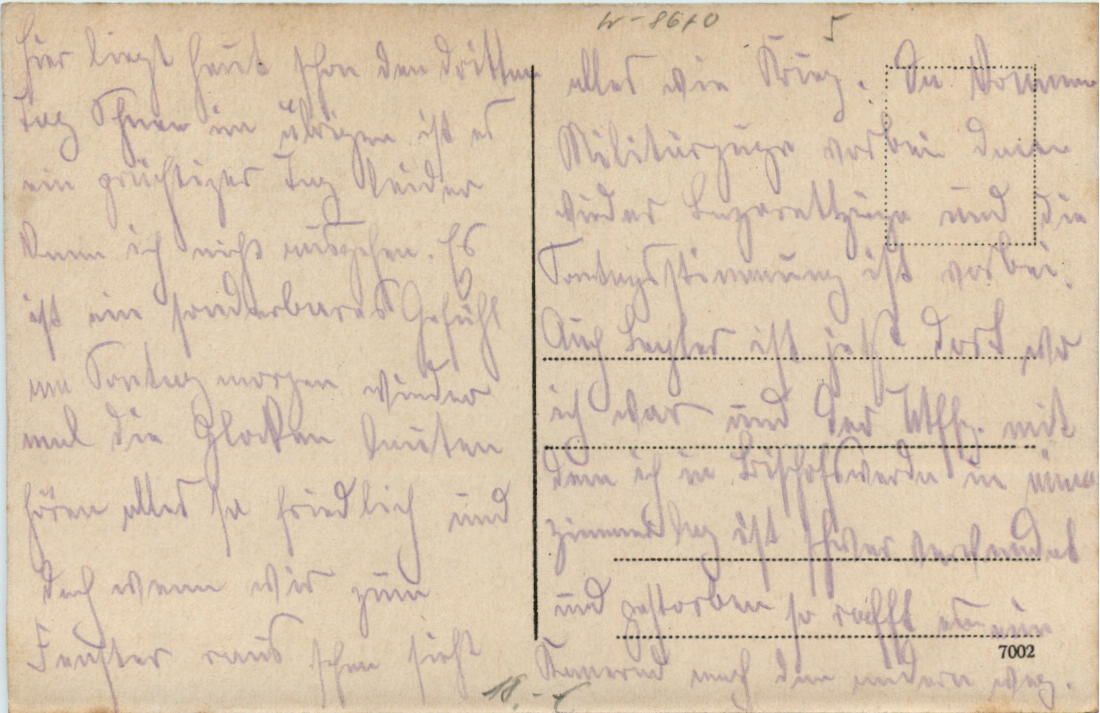 W-8610 5
hier liegt heut schon den dritten
Tag Schnee im übrigen ist es
ein prächtiger Tag leider
kann ich nicht ausgehen. Es
ist ein sonderbares Gefühl
am Sontag morgen wieder
mal die Glocken läuten
hören alles so friedlich und
doch wenn wir zum
Fenster raus schen sieht
alles wie Krieg. Da kommen
Militärzüge vorbei dann
wieder Lazarettzüge und die
Sontagsstimmung ist vorbei.
Auch ist jetzt dort wo
ich war und der Uffz. mit
dem ich in Bischofswerda in einem
Zimmer lag ist schwer verwundet
und gestorben so rafft es ein
Kamerad nach dem andern weg.
7002
18.-